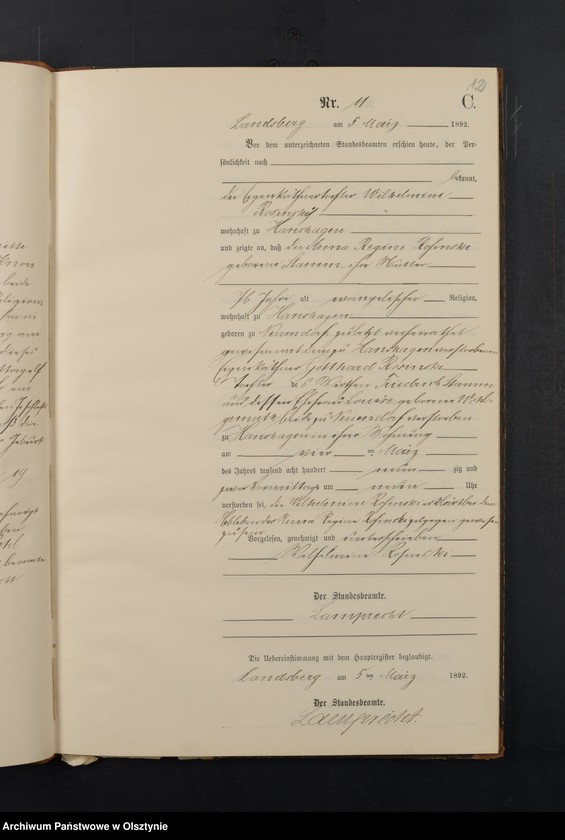 12
Nr. 11
C.
Landsberg am 5 März 1892.
Vor dem unterzeichneten Standesbeamten erschien heute, der Per-
sönlichkeit nach
bekannt,
die Eigenkäthnertochter Wilhelmine
Rosinski
wohnhaft zu Hanshagen
und zeigte an, daß die Anna Regine Rosinski
geborene Stamm, ihre Mutter
76 Jahre alt evangelischer Religion,
wohnhaft zu Hanshagen
geboren zu zuletzt verheirathet
gewesen mit dem zu Hanshagen verstorbenen
Eigenkäthner Gotthard Rosinski
Tochter des Friedrich Stamm
und dessen Ehefrau Louise, geborene
verstorben
zu Hanshagen in ihrer Wohnung
am vier ten März
des Jahres tausend acht hundert neun zig und
zwei Vormittags um neun Uhr
verstorben sei, die Wilhelmine Rosinski erklärt bei dem
Ableben der Anna Regine Rosinski zugegen gewesen
zu sein
Vorgelesen, genehmigt und unterschrieben
Wilhelmine Rosinski
Der Standesbeamte.
Lamprecht
Die Uebereinstimmung mit dem Hauptregister beglaubigt.
Landsberg am 5ten März 1892.
Der Standesbeamte.
Lamprecht.
Archiwum Państwowe w Olsztynie